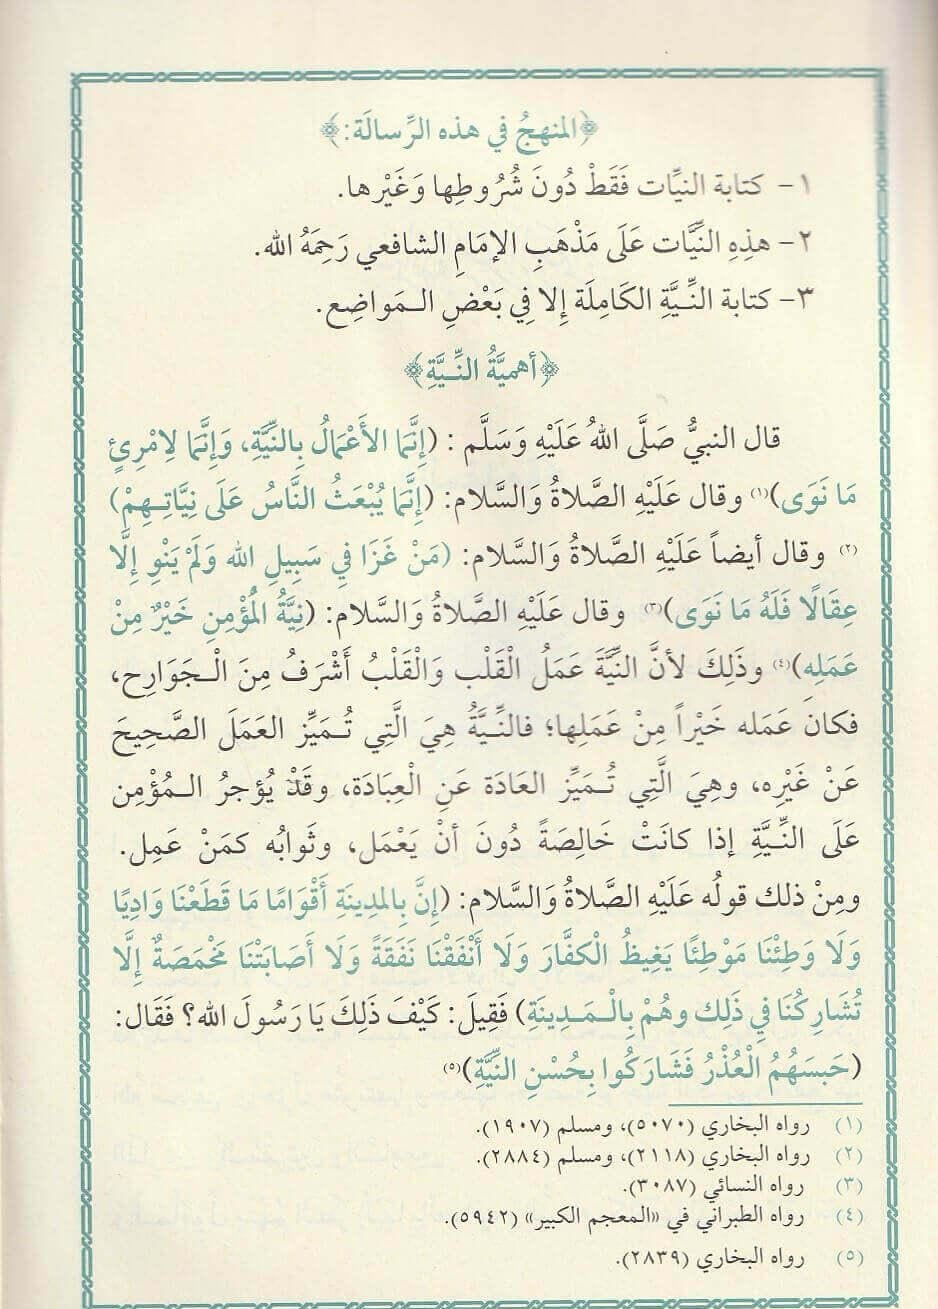 ﴿المنهجُ في هذه الرِّسالَة:﴾
١- كتابة النيِّات فَقَطْ دُونَ شُرُوطِها وَغَيْرها.
٢- هذِهِ النِّيَّات عَلَى مَذْهَبِ الإمَامِ الشافعي رَحِمَهُ الله.
٣- كتابة النِّيَّةِ الكَامِلَة إلا فِي بَعْضِ الـمَواضِع.
﴿أهميَّةُ النِّيَّةِ﴾
قال النبيُّ صَلَّى اللهُ عَلَيْهِ وَسَلَّم : (إِنَّمَا الأَعْمَالُ بِالنِّيَّةِ، وَإِنَّمَا لِامْرِئٍ
مَا نَوَى)(١) وقال عَلَيْهِ الصَّلاةُ وَالسَّلام: (إِنَّمَا يُبْعَثُ النَّاسُ عَلَى نِيَّاتِـهِمْ)
(٢) وقال أيضاً عَلَيْهِ الصَّلاةُ وَالسَّلام: (مَنْ غَزَا فِي سَبِيلِ الله وَلَمْ يَنْوِ إِلَّا
عِقَالًا فَلَهُ مَا نَوَى)(٣) وقال عَلَيْهِ الصَّلاةُ وَالسَّلام: (نِيَّةُ الْمُؤْمِنِ خَيْرٌ مِنْ
عَمَلِه)(٤) وذَلِكَ لأنَّ النِّيَّةَ عَمَلُ الْقَلْب وَالْقَلْبُ أَشْرَفُ مِنَ الْـجَوَارِح،
فكانَ عَمَله خَيْراً مِنْ عَمَلِها؛ فالنِّـيَّةُ هِيَ الَّتِي تُـمَيِّز العَمَلَ الصَّحِيحَ
عَنْ غَيْرِه، وهِيَ الَّتِي تُـمَيِّز العَادَة عَنِ الْعِبَادَة، وقَدْ يُؤجرُ الـمُؤْمِن
عَلَى النِّـيَّةِ إذا كانَتْ خَالِصَةً دُونَ أنْ يَعْمَل، وثَوابُه كمَنْ عَمِل.
ومِنْ ذلك قولُه عَلَيْهِ الصَّلاةُ وَالسَّلام: (إِنَّ بِالمدِينَةِ أَقْوَامًا مَا قَطَعْنَا وَادِيًا
وَلَا وَطِئْنَا مَوْطِئًا يَغِيظُ الْكفَّارَ وَلَا أَنْفَقْنَا نَفَقَةً وَلَا أَصَابَتْنَا مَخْمَصَةٌ إِلَّا
تُشَارِكُنَا فِي ذَلِك وهُمْ بِالْـمَـدِينَةِ) فَقِيلَ: كَيْفَ ذَلِكَ يَا رَسُولَ الله؟ فَقَال:
(حَبَسَهُمُ الْعُذْرُ فَشَارَكُوا بِحُسْنِ النِّيَّةِ)(٥)
(١) رواه البخاري (٥٠٧٠)، ومسلم (١٩٠٧).
(٢) رواه البخاري (٢١١٨)، ومسلم (٢٨٨٤).
(٣) رواه النسائي (٣٠٨٧).
(٤) رواه الطبراني في «المعجم الكبير» (٥٩٤٢).
(٥) رواه البخاري (٢٨٣٩).